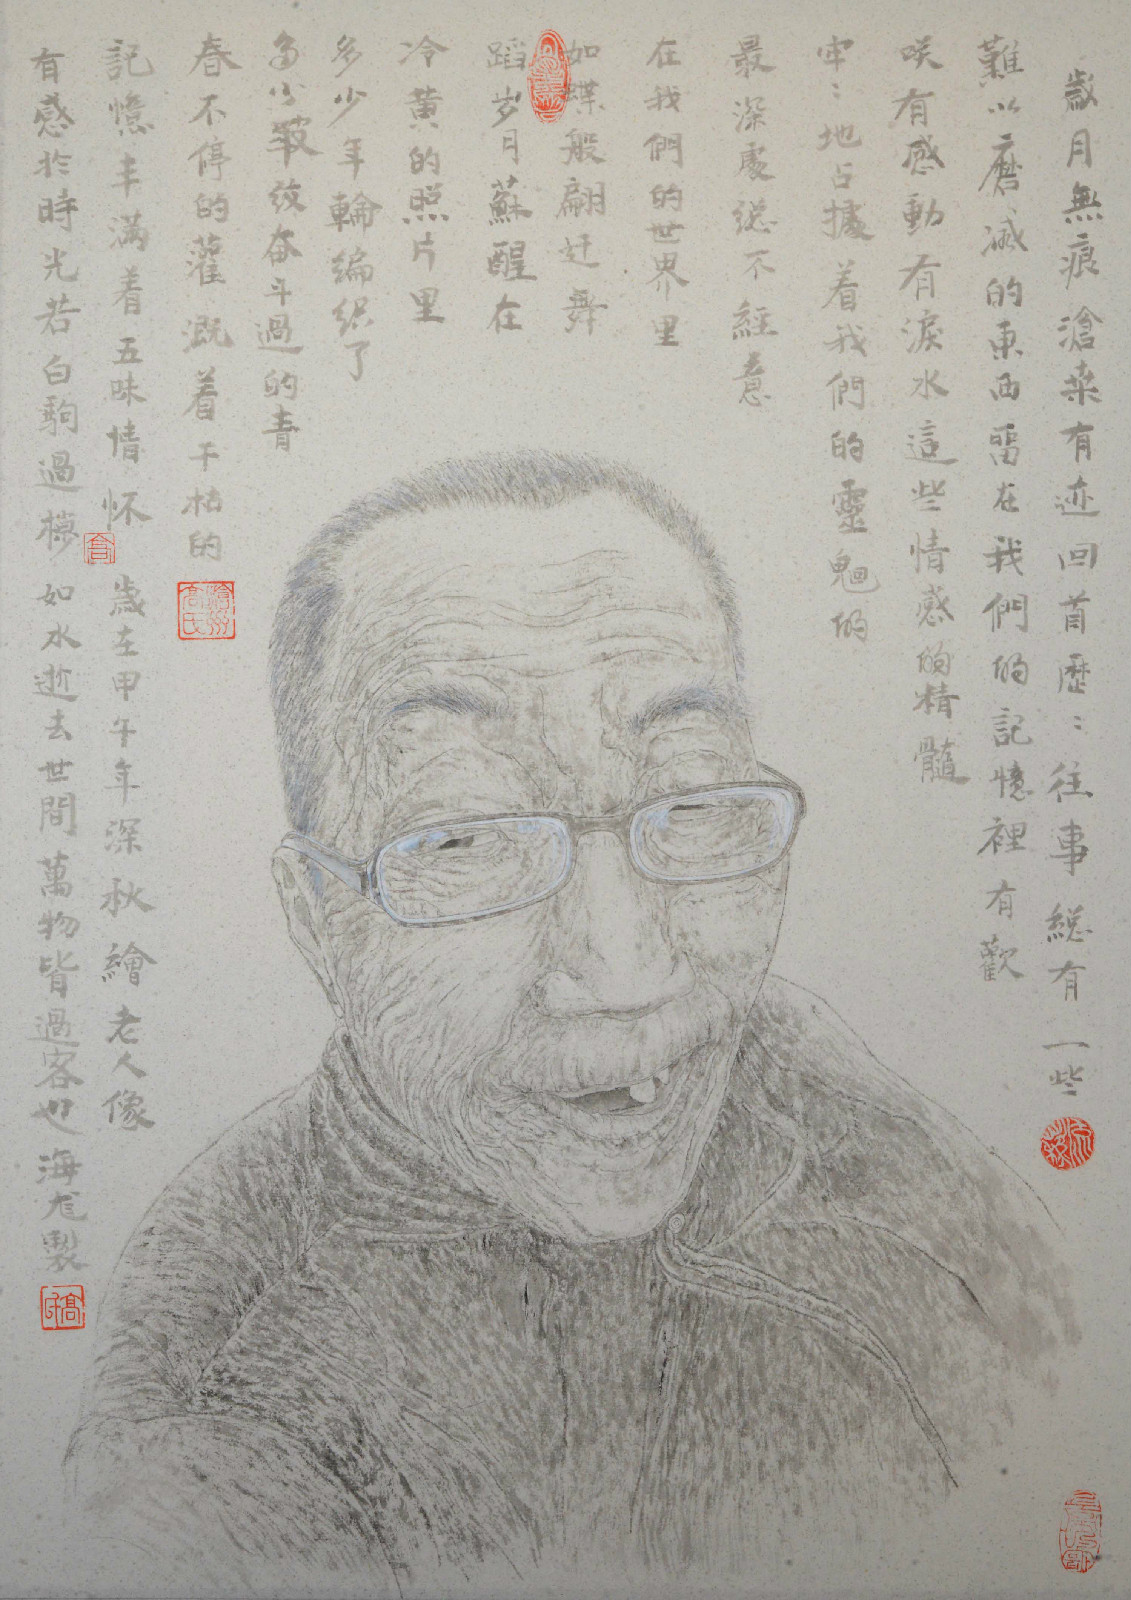 歲月無痕滄桑有迹回首歷：往事總有一些
難以磨滅的東西留在我們的記憶裡有歡
咲有感動有淚水這些情感的精髓
牢：地占據着我們的靈魂的
最深處總不經意
在我們的世界里
如蝶般翩跹舞
蹈岁月蘇醒在
冷黄的照片里
多少年輪編织了
多少皱纹奋斗過的青
春不停的灌溉着干枯的
記憶丰满着五味情怀 歲在甲午年深秋繪老人像
有感於時光若白駒過隙如水逝去世間萬物皆過客也海龙製
滄州高氏
高氏